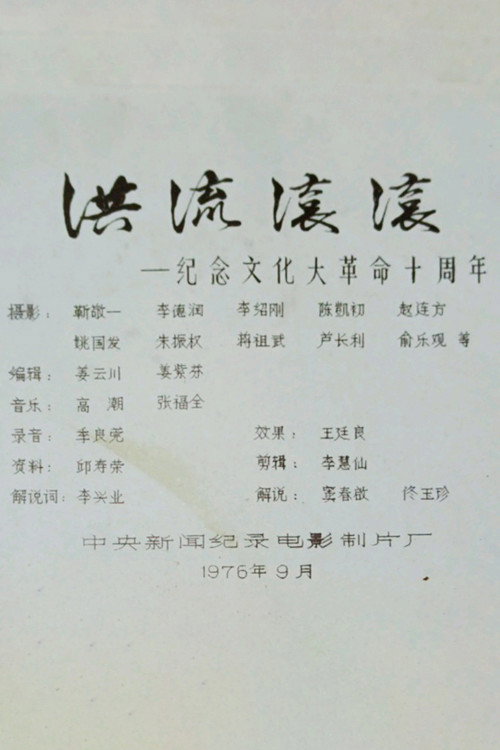 洪流滚滚
—纪念文化大革命十周年
摄影: 靳敬一 李德润 李绍刚 陈凯初 赵连方
姚国发 朱振权 蒋祖武 芦长利 俞乐观 等
编辑: 姜云川 姜紫芬
音乐: 高潮 张福全
录音: 季良尧 效果: 王廷良
资料: 邱寿荣 剪辑: 李慧仙
解说词: 李兴业 解说: 窦春敏 佟玉珍
中央新闻纪录电影制片厂
1976年9月